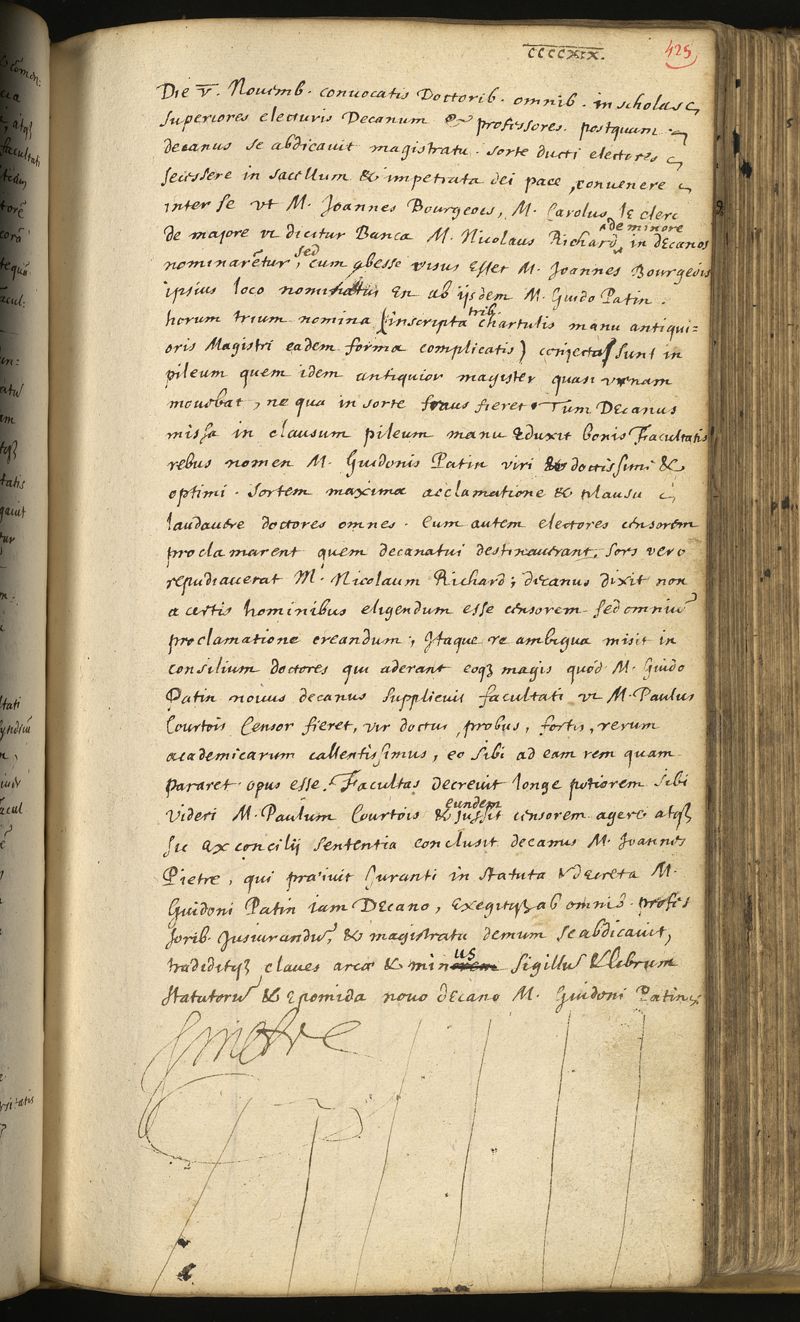 CCCCXIX.
425
Die V. Novemb. convocatis Doctorib. omnib. in scholas
superiores electuris Decanum & professores. postquam
decanus se abdicavit magistratu. sorte ducti electores
secessere in sacellum & impetrata dei pace, convenere
inter se ut M. Joannes Bourgeois, M. Carolus le clerc
de majore ut dicitur Banca M. Nicolaus Richard, de minore in decanos
nominarẽtur, sed cum abesse visus esset M. Joannes Bourgeois
ipsius loco nominatus en ab ijsdem M. Guido Patin.
horum trium nomina (inscripta trib. chartulis manu antiqui=
oris Magistri eadem forma complicatis) conjecta sunt in
pileum quem idem antiquior magister quasi urnam
movebat, ne qua in sorte fraus fieret. Tum Decanus
missa in clausum pileum manu eduxit bonis Facultatis
rebus nomen M. Guidonis Patin viri doctissimi &
optimi. sortem maxima acclamatione & plausu
laudavere doctores omnes. Cum autem electores censorem
proclamarent quem decanatui destinaverant, sors vero
repudiaverat M. Nicolaum Richard; decanus dixit non
a certis hominibus eligendum esse censorem sed omniũ
proclamatione creandum; Itaque re ambigua misit in
consilium doctores qui aderant eoqȝ magis quod M. Guido
Patin novus decanus supplicuit facultati ut M. Paulus
Courtois Censor fieret, vir doctus, probus, fortis, rerum
academicarum callentissimus, eo sibi ad eam rem quam
pararet opus esse. Facultas decrevit longe potiorem sibi
videri M. Paulum Courtois & eundem jussit censorem agere atqȝ
sic ex concilij sententia conclusit decanus M. Joannes
Pietre, qui præivit juranti in statuta & decreta M.
Guidoni Patin iam Decano, exegitqȝ ab omnib. profes
sorib. jusiurandũ, & magistratu demum se abdicavit,
tradiditqȝ claves arcæ & minus sigillũ & librum
statutorũ & epomida novo decano M. Guidoni Patin